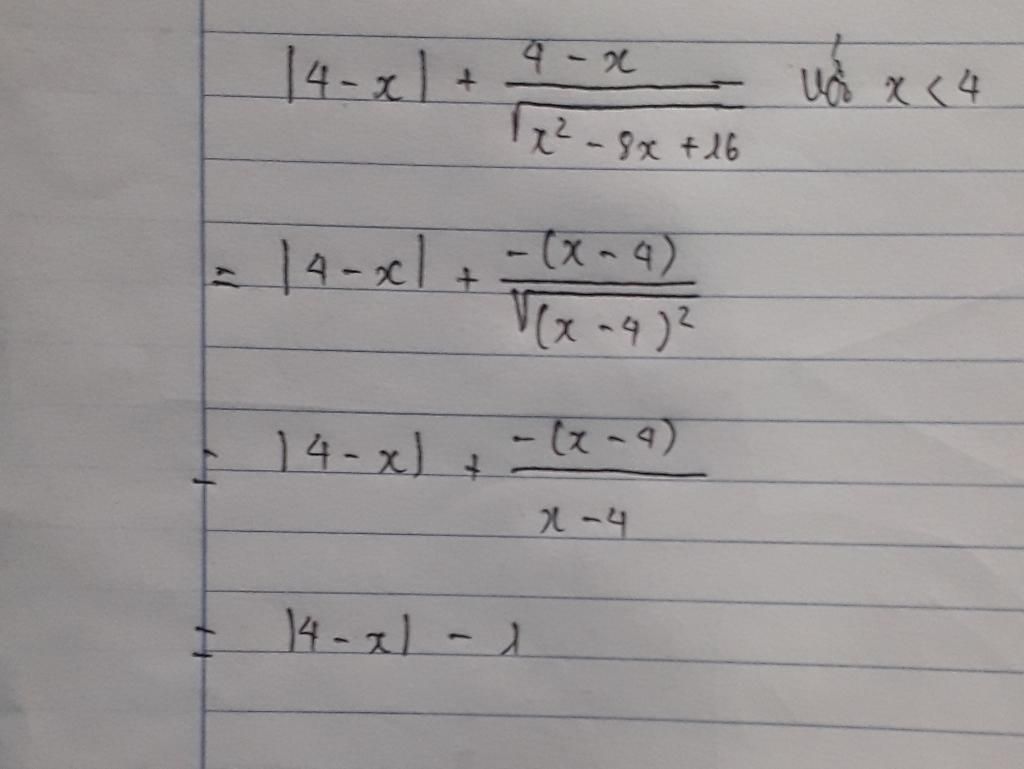 |4 - x| + \frac{4 - x}{\sqrt{x^2 - 8x + 16}} với x < 4
= |4 - x| + \frac{-(x - 4)}{\sqrt{(x - 4)^2}}
= |4 - x| + \frac{-(x - 4)}{x - 4}
= |4 - x| - 1